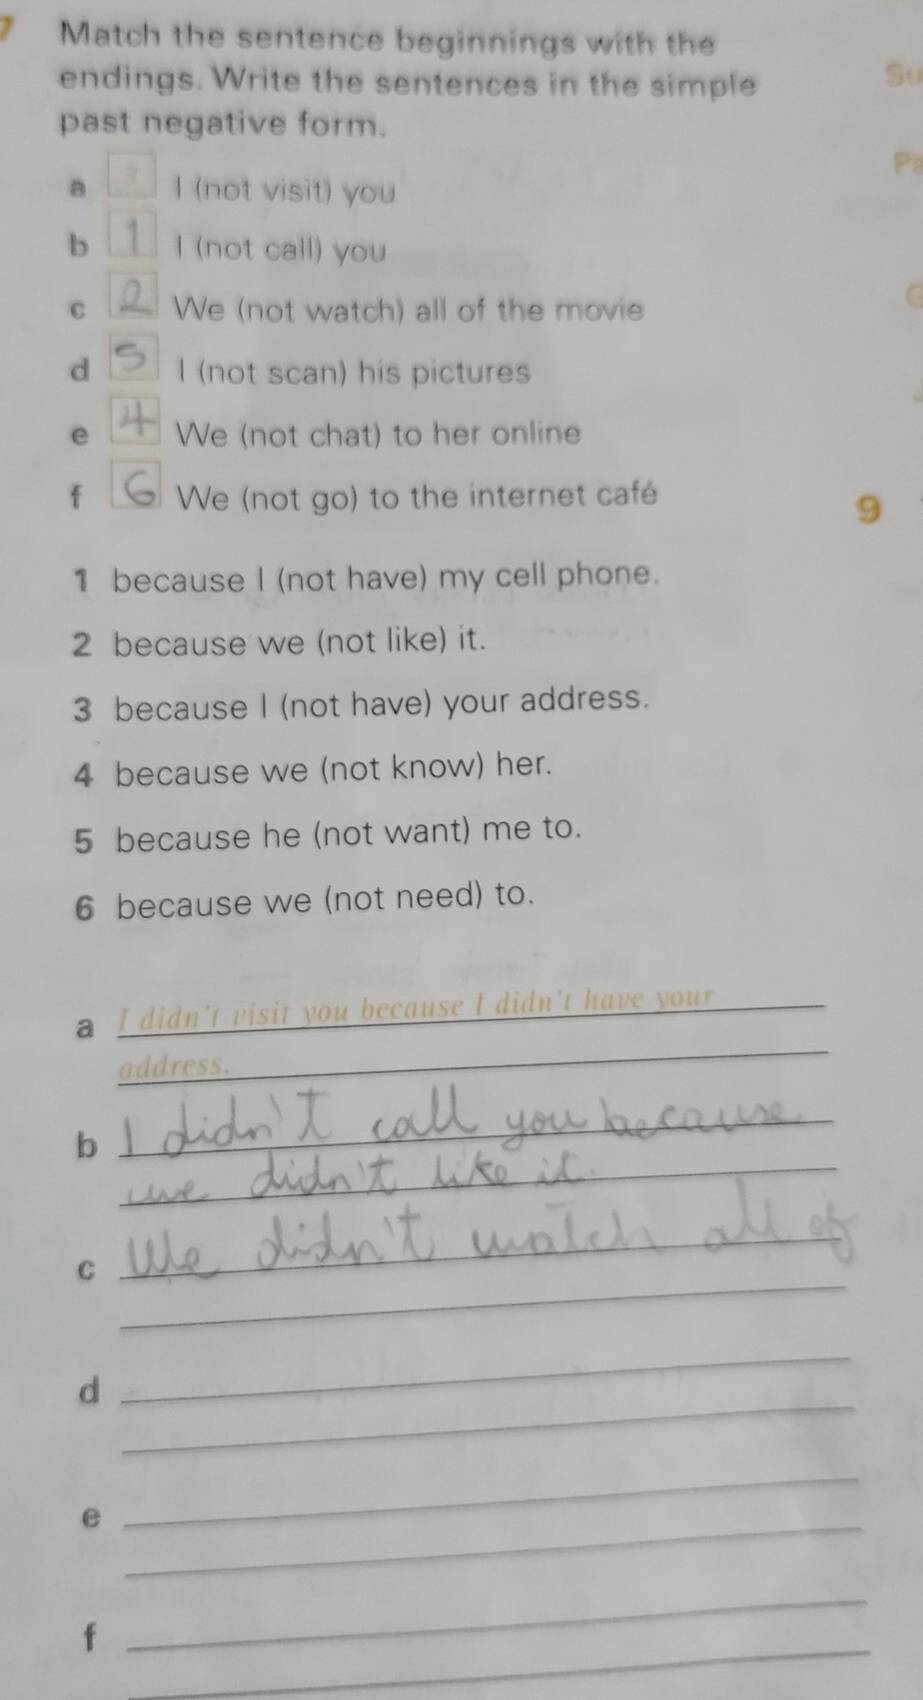 7 Match the sentence beginnings with the
endings. Write the sentences in the simple
past negative form.
a 3 I (not visit) you
b 1 I (not call) you
c 2 We (not watch) all of the movie
d 5 I (not scan) his pictures
e 4 We (not chat) to her online
f 6 We (not go) to the internet café
1 because I (not have) my cell phone.
2 because we (not like) it.
3 because I (not have) your address.
4 because we (not know) her.
5 because he (not want) me to.
6 because we (not need) to.
a I didn't visit you because I didn't have your
address.
b I didn't call you because
we didn't like it.
c We didn't watch all of
d
e
f
Su
Pa
9